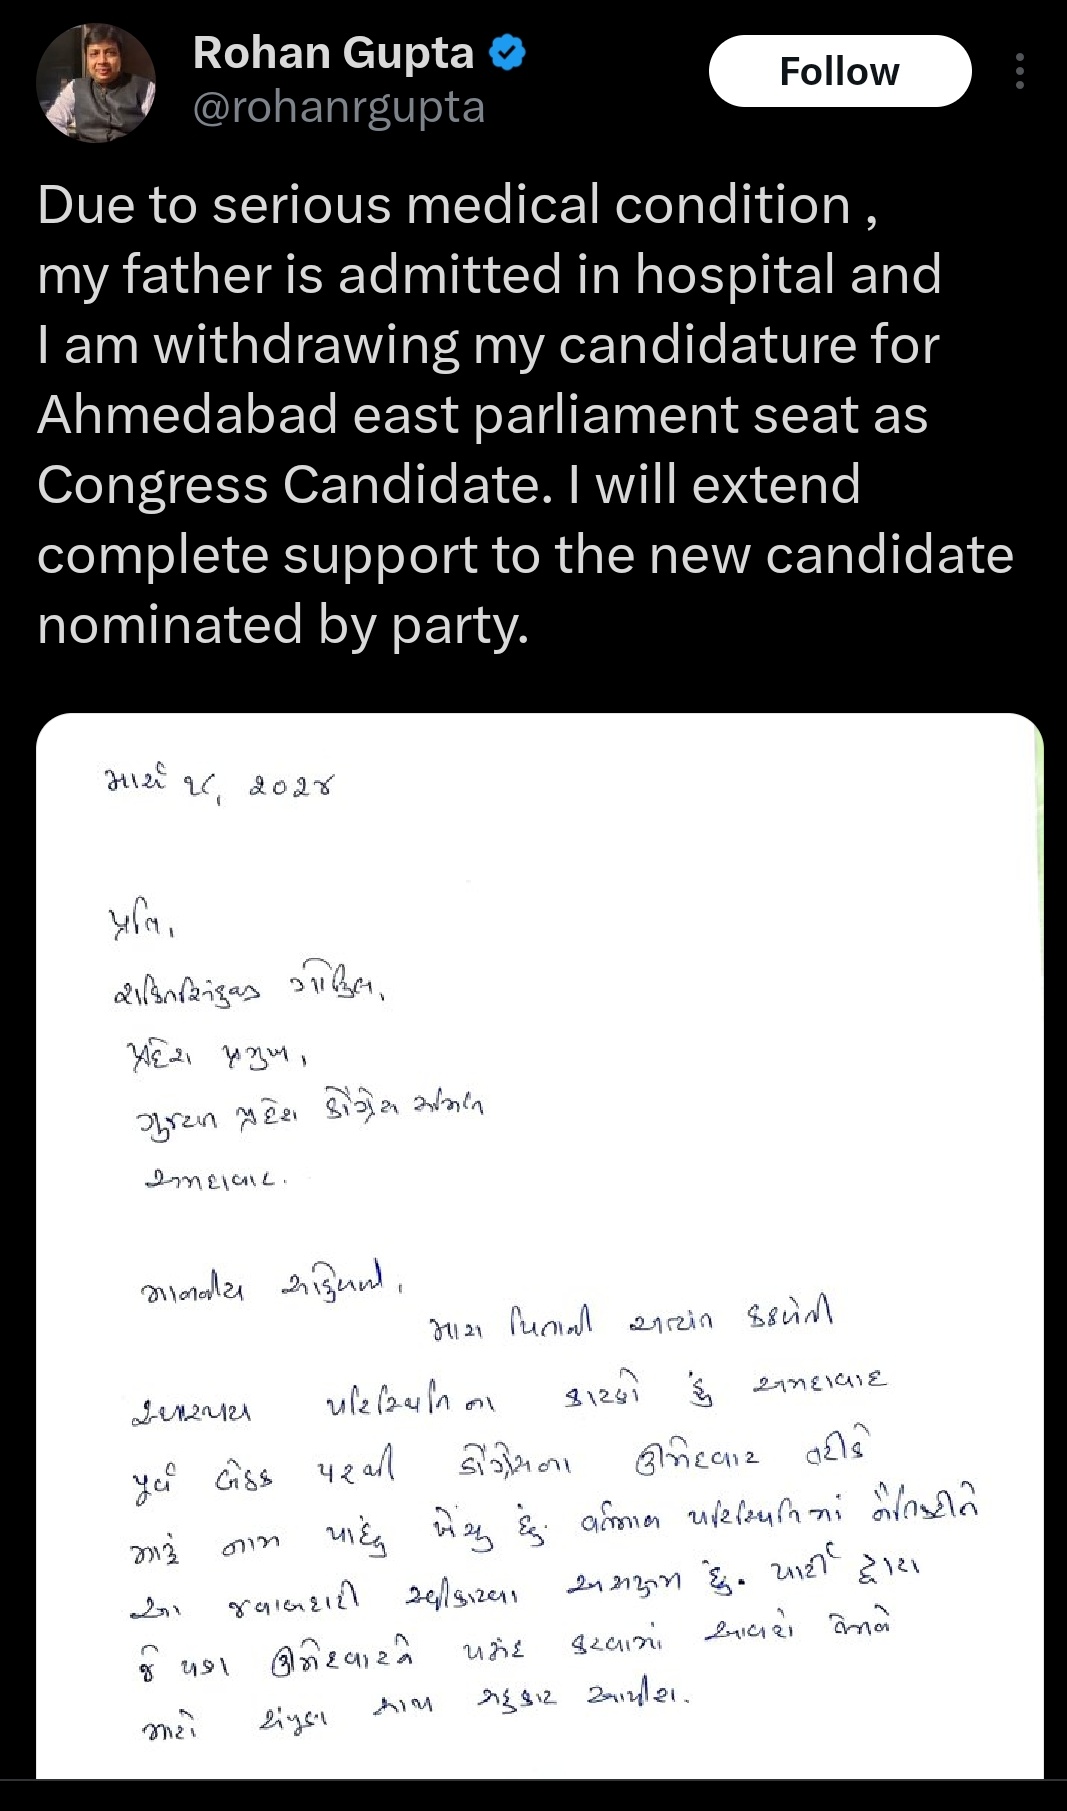 Rohan Gupta
@rohanrgupta
Follow
Due to serious medical condition ,
my father is admitted in hospital and
I am withdrawing my candidature for
Ahmedabad east parliament seat as
Congress Candidate. I will extend
complete support to the new candidate
nominated by party.
માર્ચ ૧૮, ૨૦૨૪
પ્રતિ,
શક્તિસિંહજી ગોહિલ,
પ્રદેશ પ્રમુખ,
ગુજરાત પ્રદેશ કોંગ્રેસ સમિતિ
અમદાવાદ.
માનનીય શક્તિભાઈ,
મારા પિતાની અત્યંત કથળેલી
સ્વાસ્થ્ય પરિસ્થિતિ ના કારણે હું અમદાવાદ
પૂર્વ બેઠક પરથી કોંગ્રેસના ઊમેદવાર તરીકે
મારૂં નામ પાછું ખેંચુ છું. વર્તમાન પરિસ્થિતિમાં
આ જવાબદારી સ્વીકારવા અસમર્થ છું. પાર્ટી દ્વારા
જે પણ ઊમેદવારને પસંદ કરવામાં આવશે તેમને
મારો સંપુર્ણ સાથ સહકાર આપીશ.